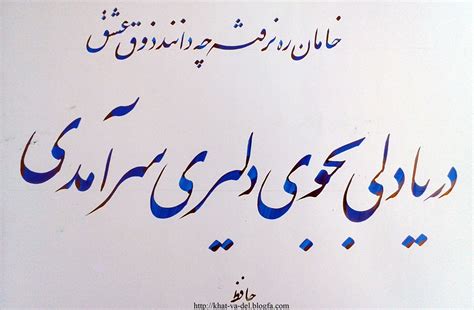 خامان ره نرفته چه دانند ذوق عشق
دریادلی بجوی دلیری سرآمدی
حافظ
http://khat-va-del.blogfa.com